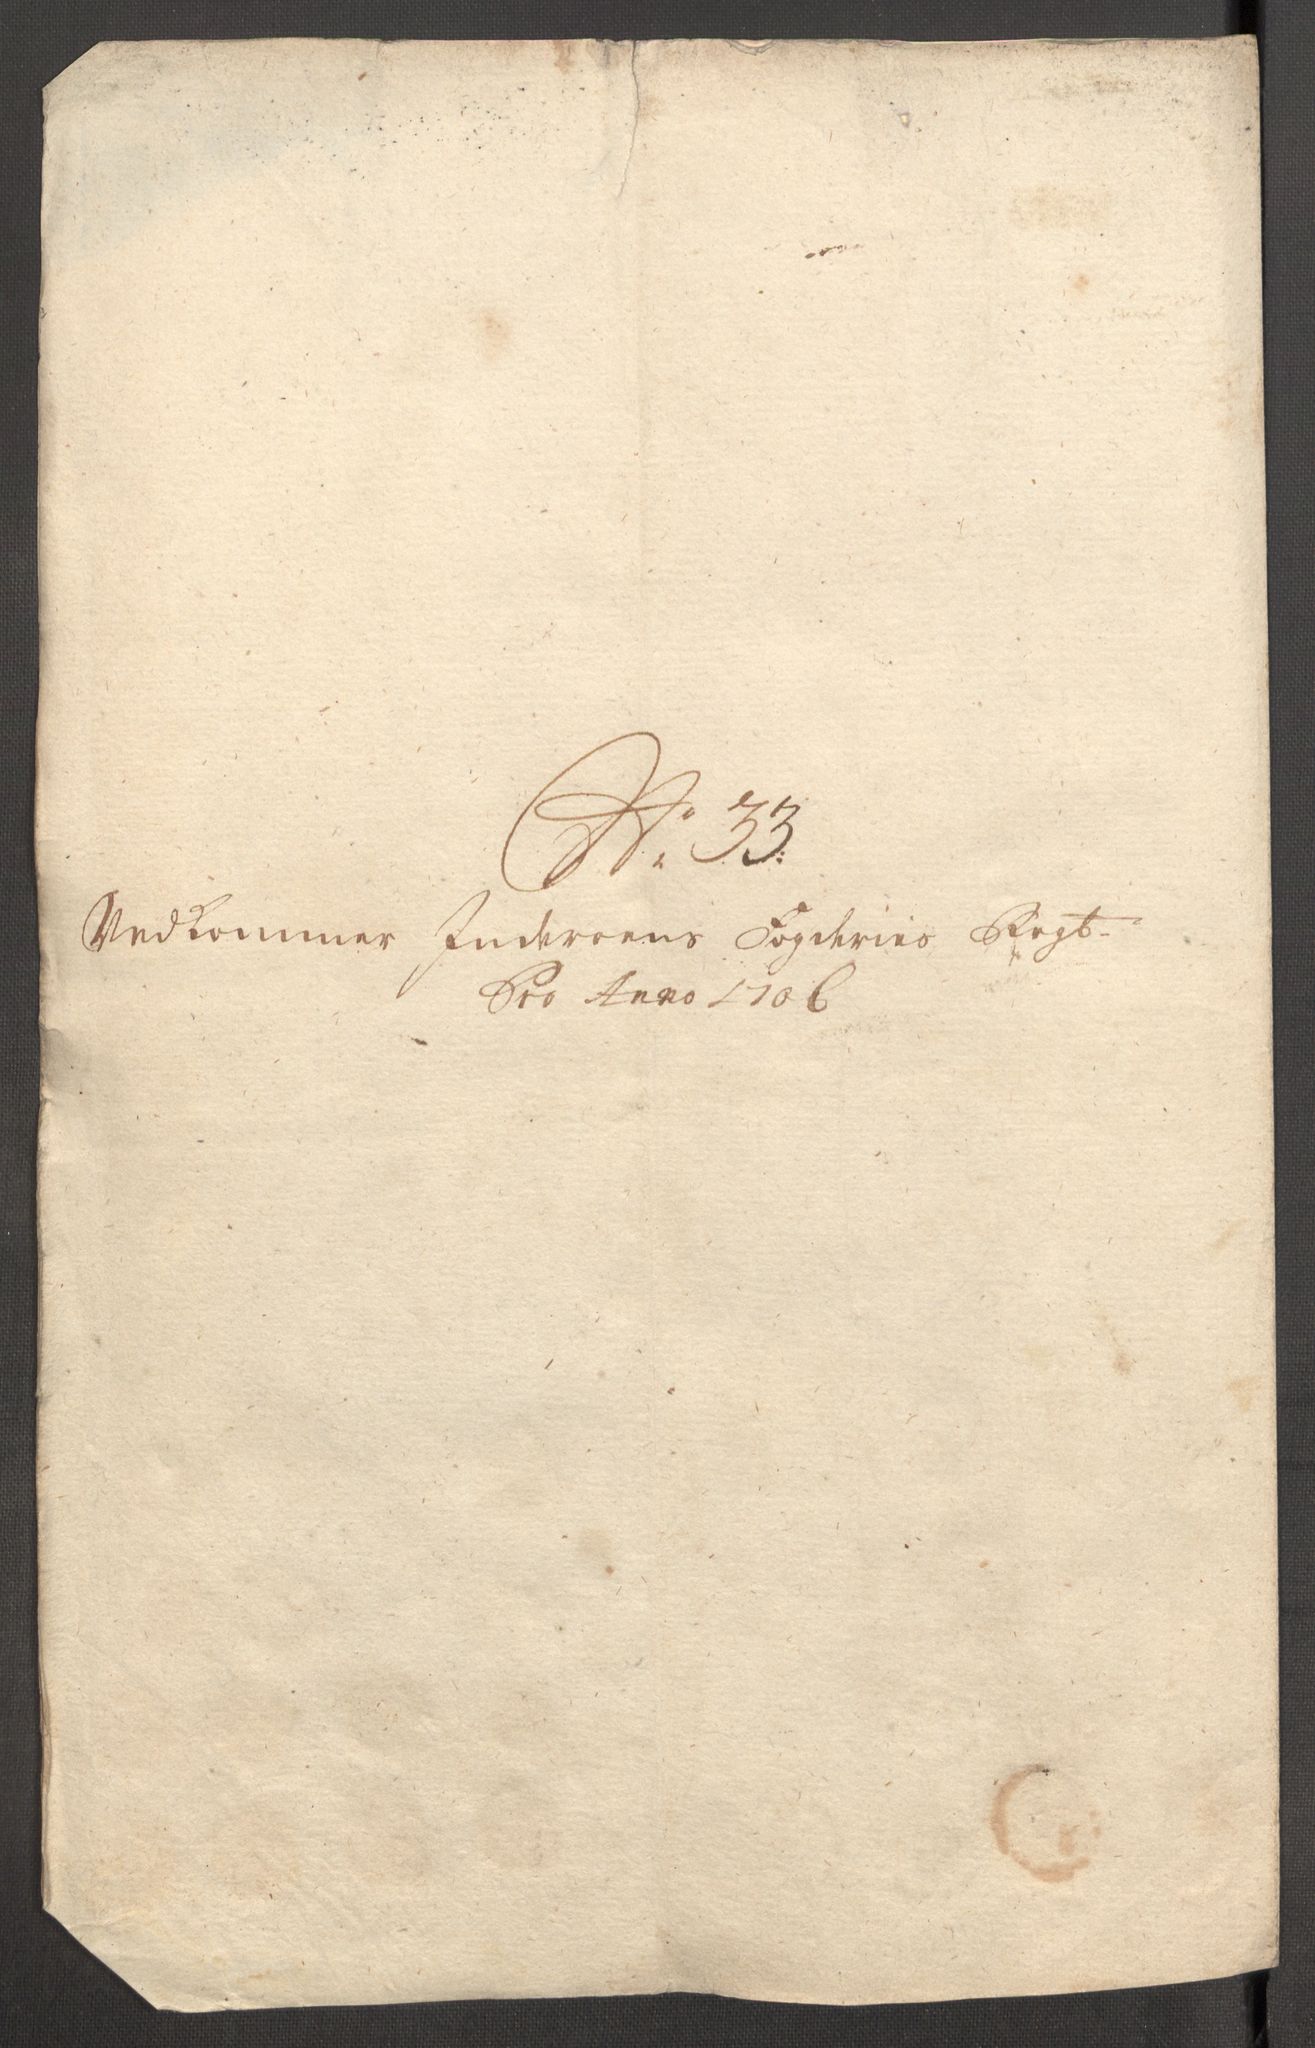 No. 33.
Vedkommer Inderoens Fogderies Regt.
Pro Anno 1706